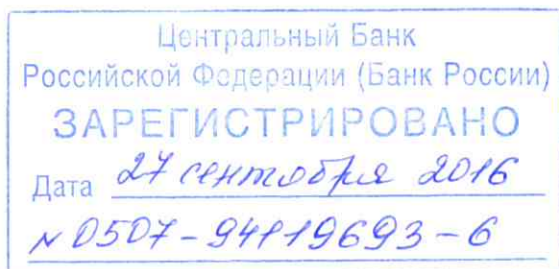 Центральный Банк
Российской Федерации (Банк России)
ЗАРЕГИСТРИРОВАНО
Дата 27 сентября 2016
N 0507-94119693-6